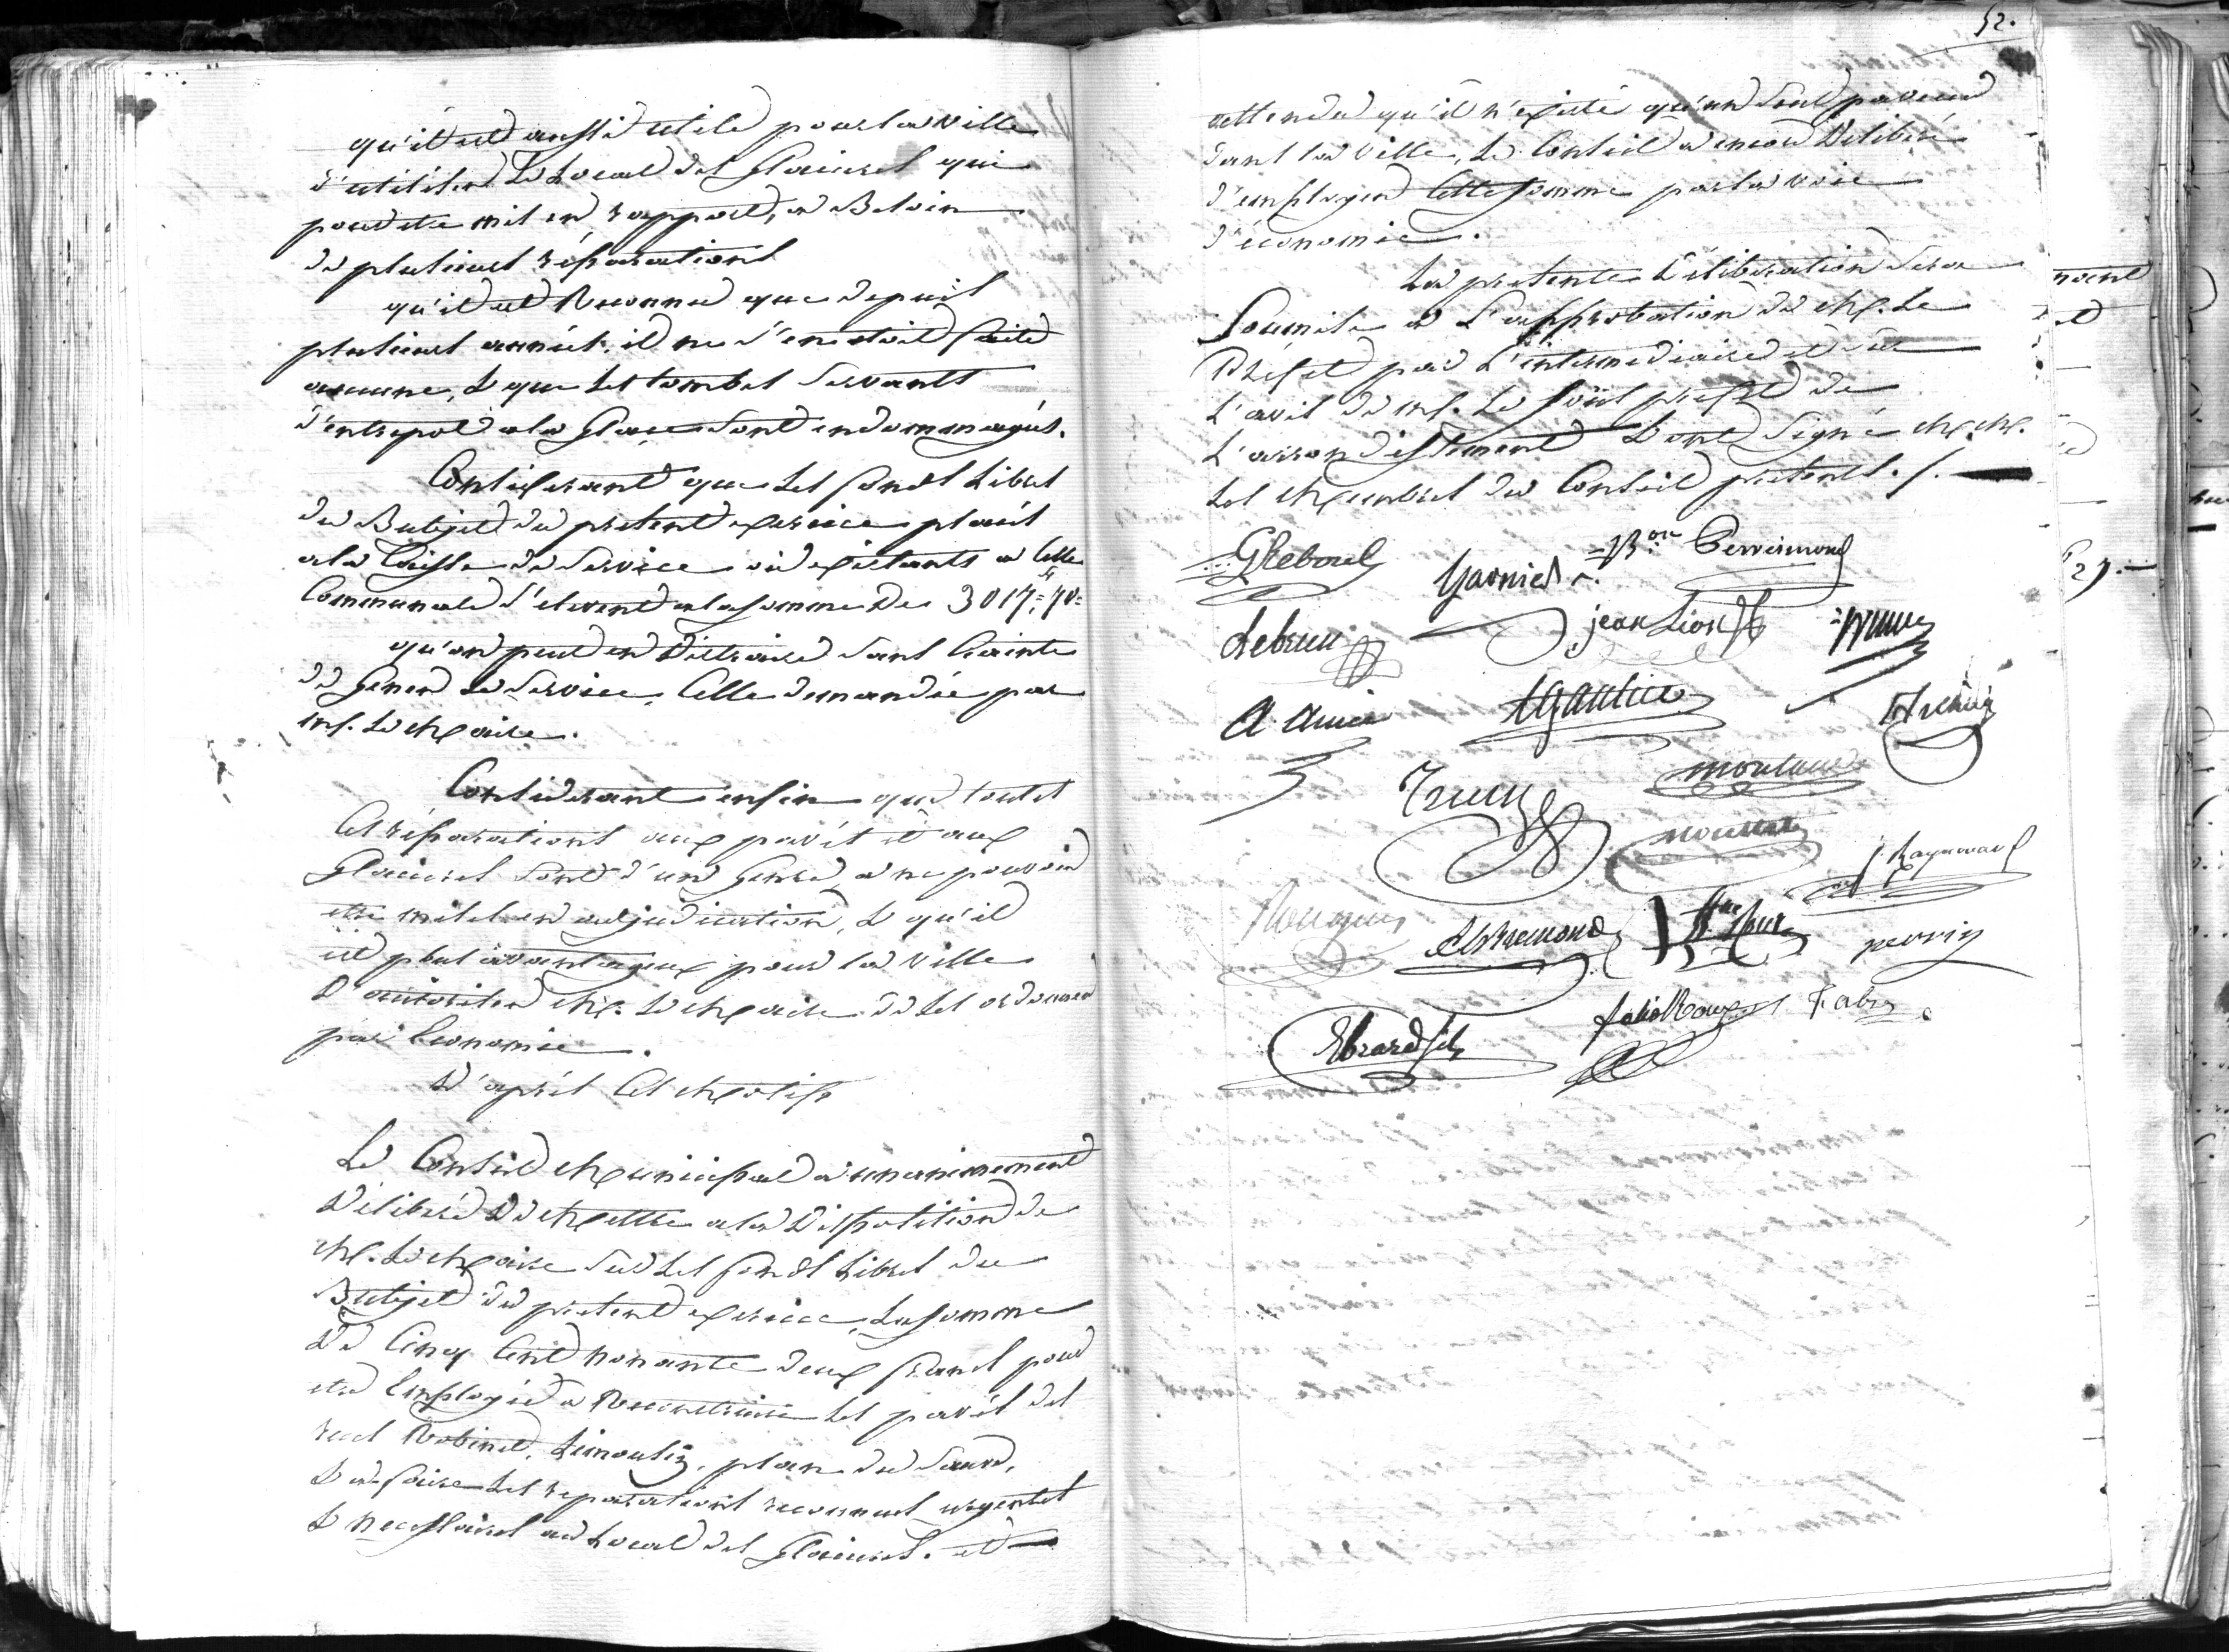 qu'il est aussi utile pour la ville
d'utiliser le Local des Glacieres qui
pour etre mis en rapport, a Besoin
de plusieurs réparations
qu'il est Reconnu que depuis
plusieurs années, il ne s'en étoit faite
aucune, & que les tombes servants
d'entrepot a la Glace sont endommagés.
Considerant que les fonds Libres
du Budjet du present exercice placés
a la Caisse de Service où existants a Celle
Communale s'elevent a la somme de 3017 f. 70 c
qu'on peut en Distraire sans Crainte
de Gener le Service, Celle demandée par
Mr. Le Maire.
Considerant enfin que toutes
Ces réparations aux pavés et aux
Glacieres sont d'un Genre a ne pouvoir
etre mises en adjudication, & qu'il
est plus avantageux pour la ville
D'autoriser Mr. Le Maire de les ordonner
par Economie.
D'après Ces Motifs
Le Conseil Municipal a unanimement
Délibéré De Mettre a la Disposition de
Mr. Le Maire sur les fonds Libres du
Budjet du present exercice, La somme
De Cinq Cent nonante deux francs pour
etre Employée a Reconstruire les pavés des
rues Robinet, Limoulin, plan du
& a faire les reparations reconnues urgentes
& Necessaires au Local des Glacieres. et
52.
attendu qu'il n'existe qu'un seul paveur
dans la Ville, Le Conseil a encore Délibéré
d'employer Cette somme par la voie
d'économie.
La presente Délibération sera
Soumise a L'approbation de Mr. Le
Préfet par L'intermediaire et sur
L'avis de Mr. Le Sous préfet de
L'arrondissement & ont Signé M. M.
Les Membres du Conseil presents.
GReboul
Garnier
Bon Perreimond
Lebrun
jean Lion
A. Amic
Gautier
Truc
J. Raynouard
Bremond
perrin
felix Roux
Fabre
Ebrard fils